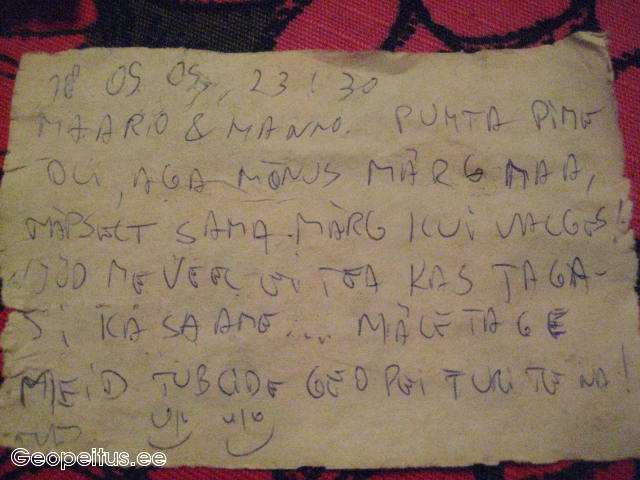 18 09. 09, 23:30
MAARIO & MANNO. PUHTA PIME
OLI, AGA MÕNUS MÄRG MAA,
TÄPSELT SAMA MÄRG KUI VALGES!
NÜÜD ME VEEL EI TEA KAS TAGA-
SI KA SAAME... MÄLETAGE
MEID TUBLIDE GEOPEITURITENA!
Geopeitus.ee